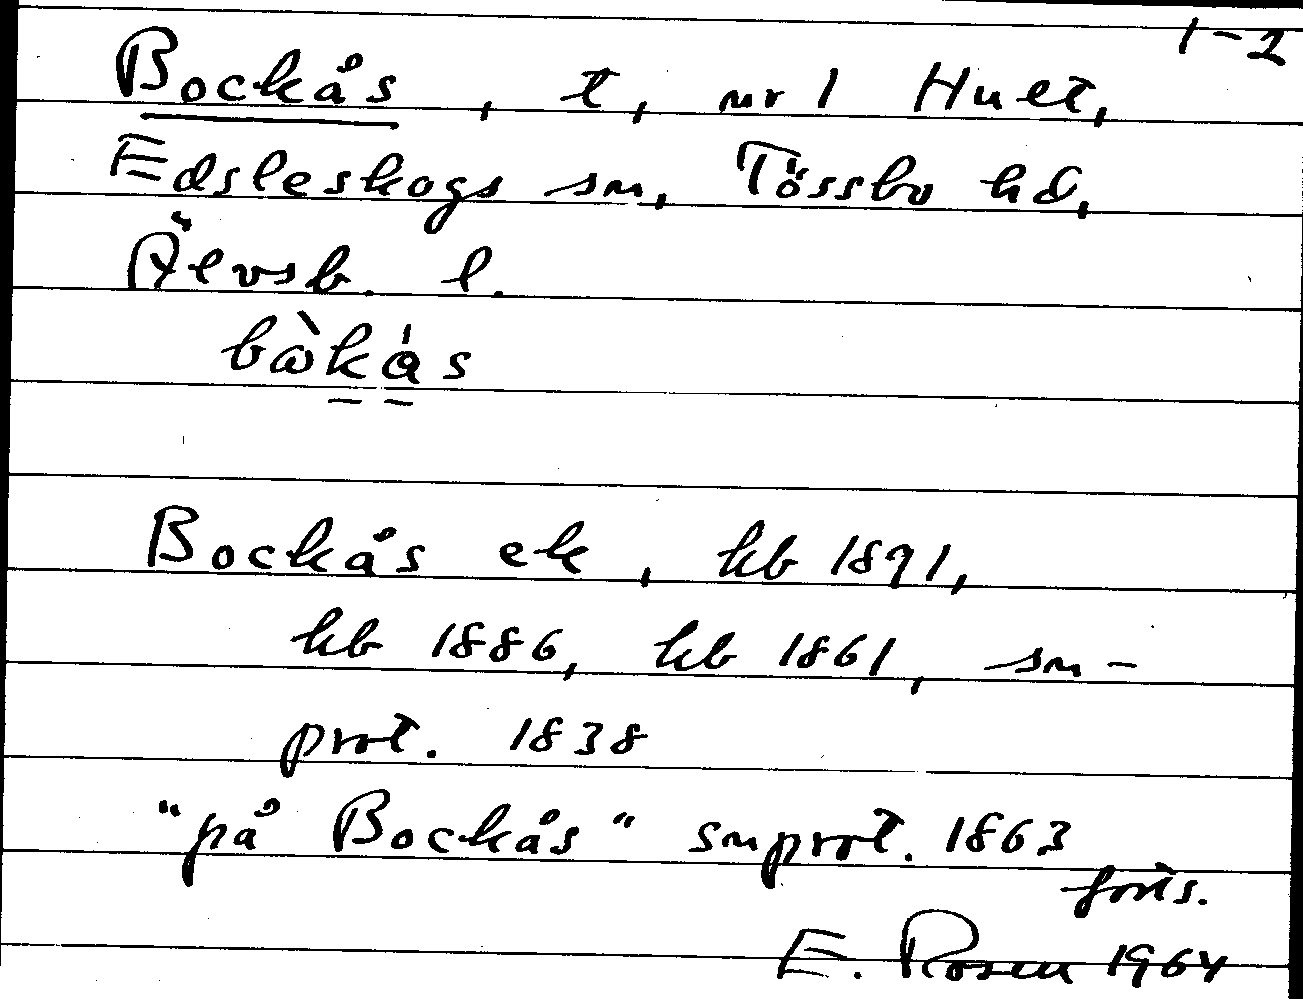 1-2
Bockås, t, nr 1 Huet,
Edsleskogs sn, Tössbo hd,
Älvsb. l.
bὼkás
Bockås ek, kb 1891,
kb 1886, kb 1861, sn-
prot. 1838
"på Bockås" snprot. 1863
forts.
E. Rosen 1964